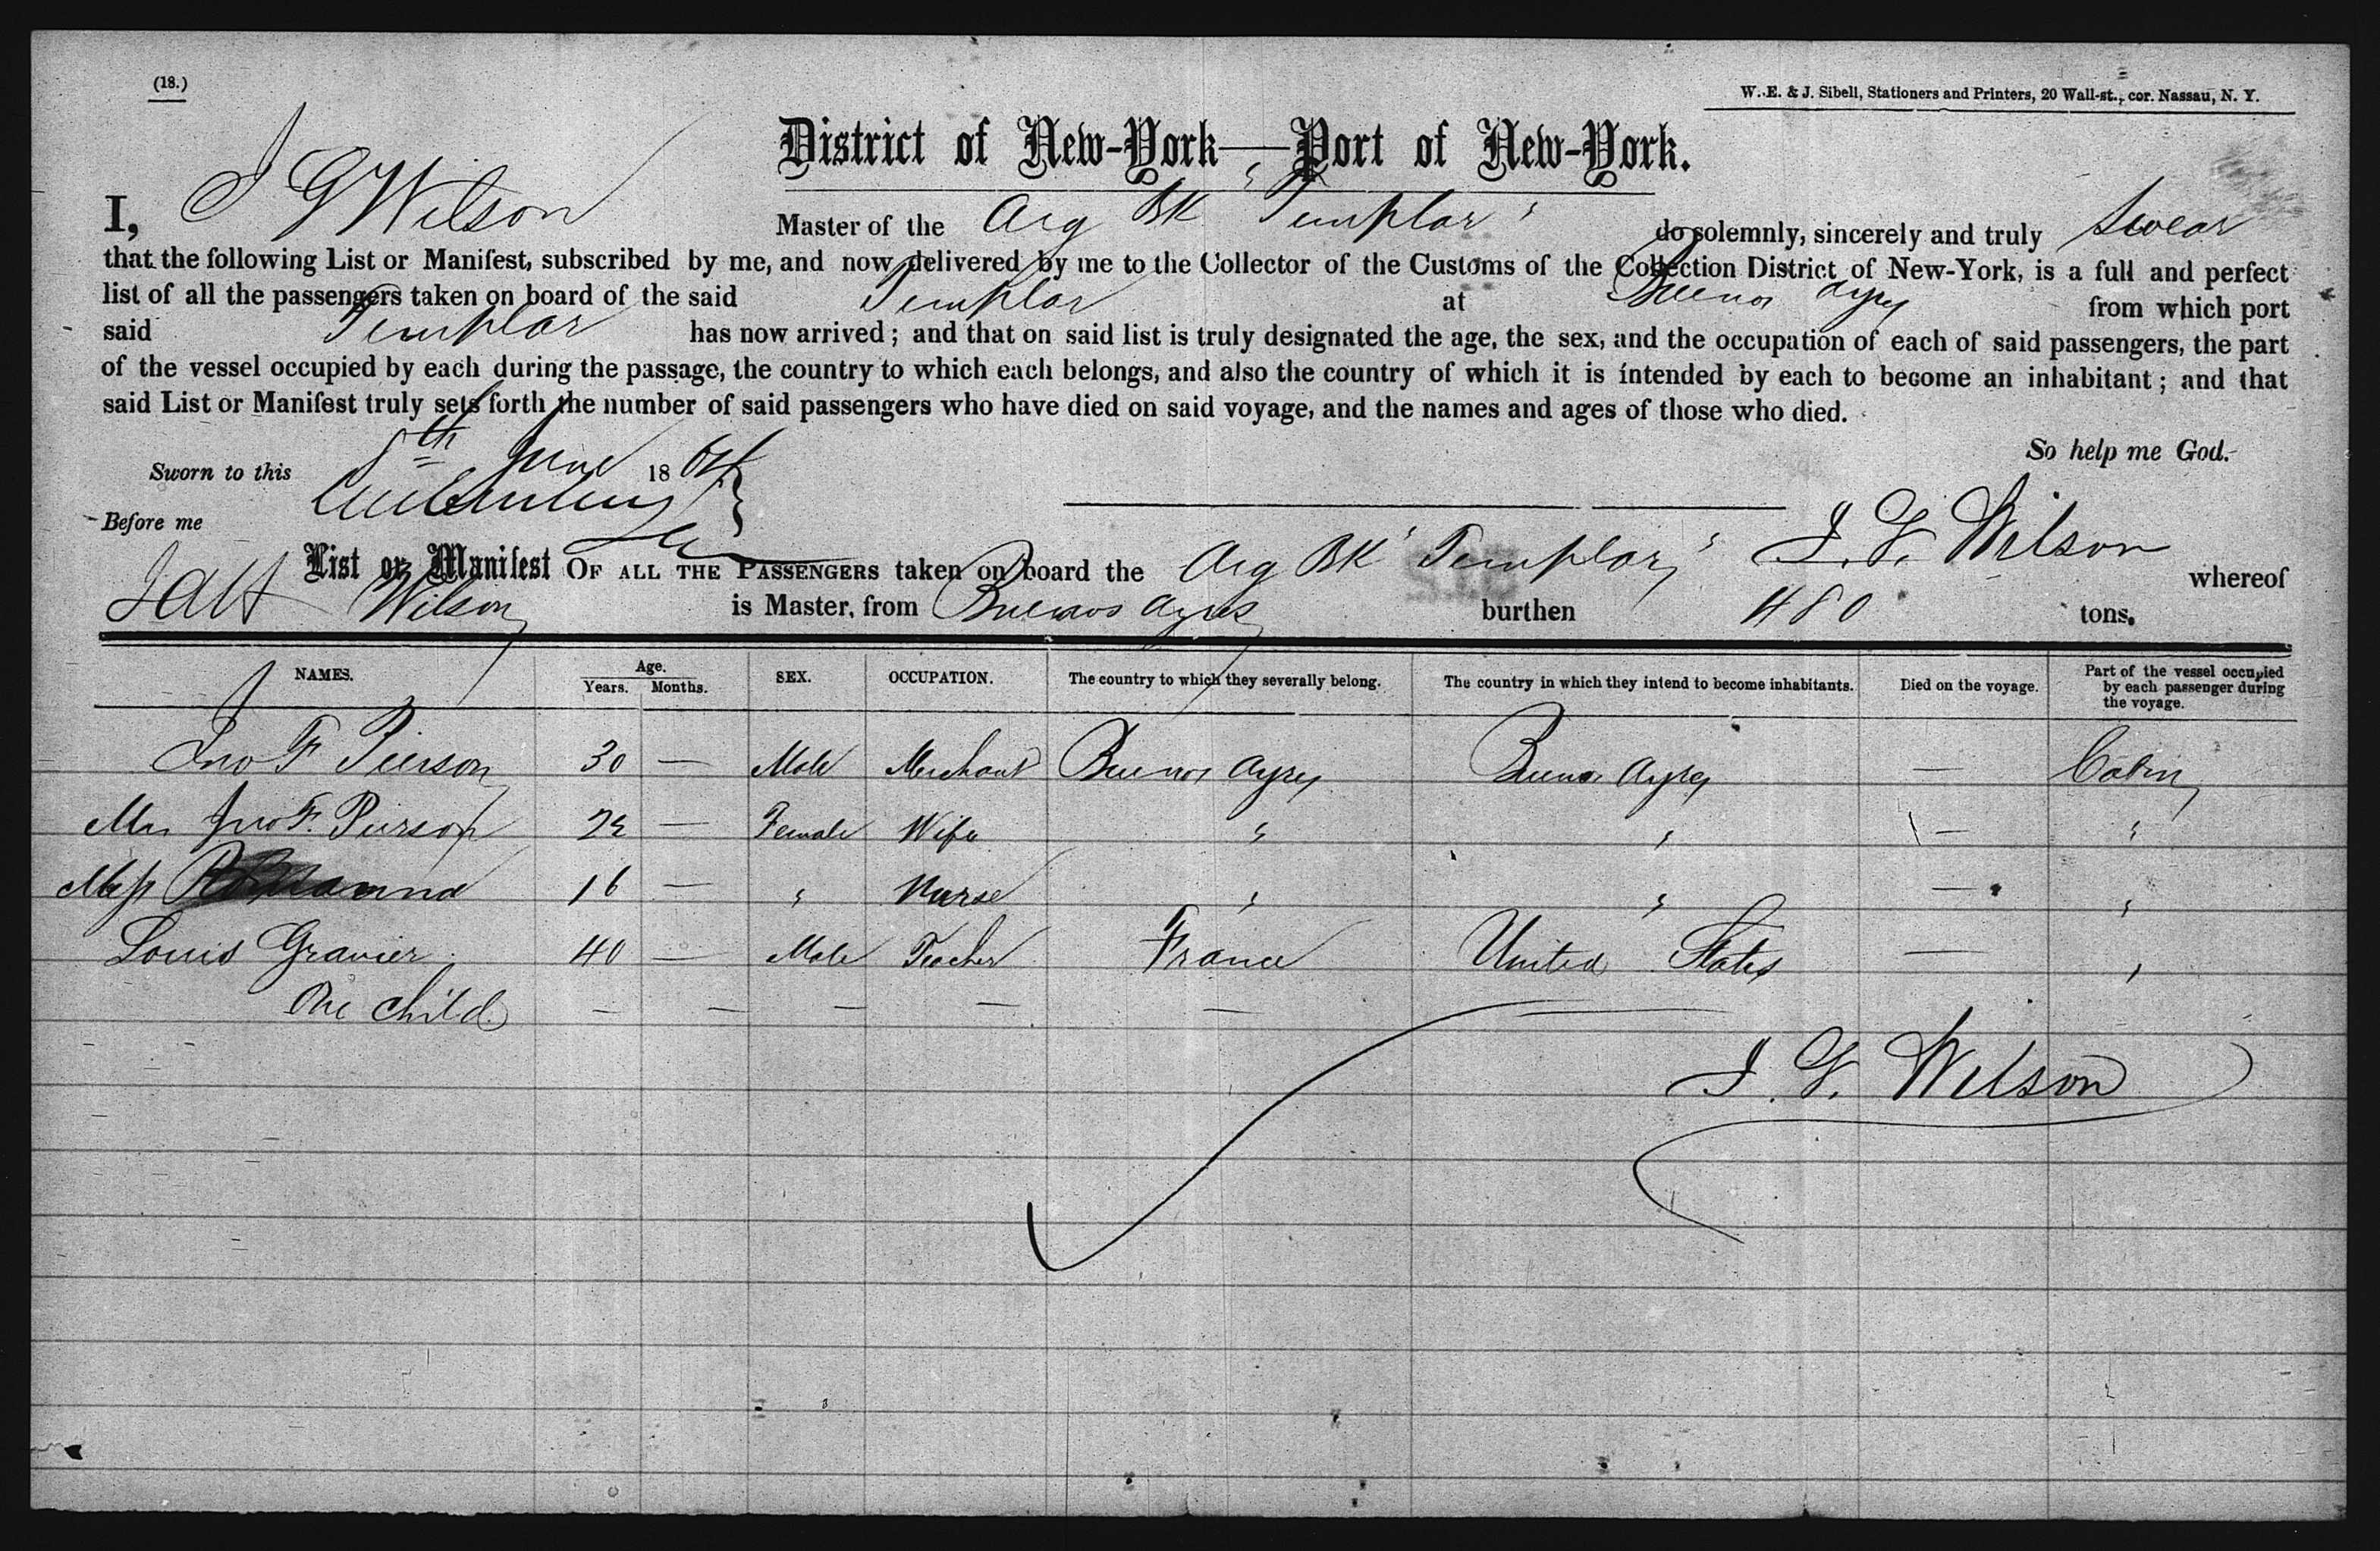 (18.)
W. E. & J. Sibell, Stationers and Printers, 20 Wall-st., cor. Nassau, N. Y.
District of New-York—Port of New-York.
I, J G Wilson Master of the Arg Bk "Templar" do solemnly, sincerely and truly swear
that the following List or Manifest, subscribed by me, and now delivered by me to the Collector of the Customs of the Collection District of New-York, is a full and perfect
list of all the passengers taken on board of the said Templar at Buenos Ayres from which port
said Templar has now arrived; and that on said list is truly designated the age, the sex, and the occupation of each of said passengers, the part
of the vessel occupied by each during the passage, the country to which each belongs, and also the country of which it is intended by each to become an inhabitant; and that
said List or Manifest truly sets forth the number of said passengers who have died on said voyage, and the names and ages of those who died.
So help me God.
Sworn to this th June 1864
Before me
J. G. Wilson
List or Manifest OF ALL THE PASSENGERS taken on board the Arg Bk "Templar," whereof
Wilson is Master, from Buenos Ayres burthen 480 tons.
NAMES. Age. Years. Months. SEX. OCCUPATION. The country to which they severally belong. The country in which they intend to become inhabitants. Died on the voyage. Part of the vessel occupied by each passenger during the voyage.
Jno F Pierson 30 — Male Merchant Buenos Ayres Buenos Ayres — Cabin
Mrs Jno F. Pierson — Female Wife " " — "
Miss 16 — " Nurse " " — "
Louis Gravier 40 — Male Teacher France United States — "
One child — — — — —
J. G. Wilson